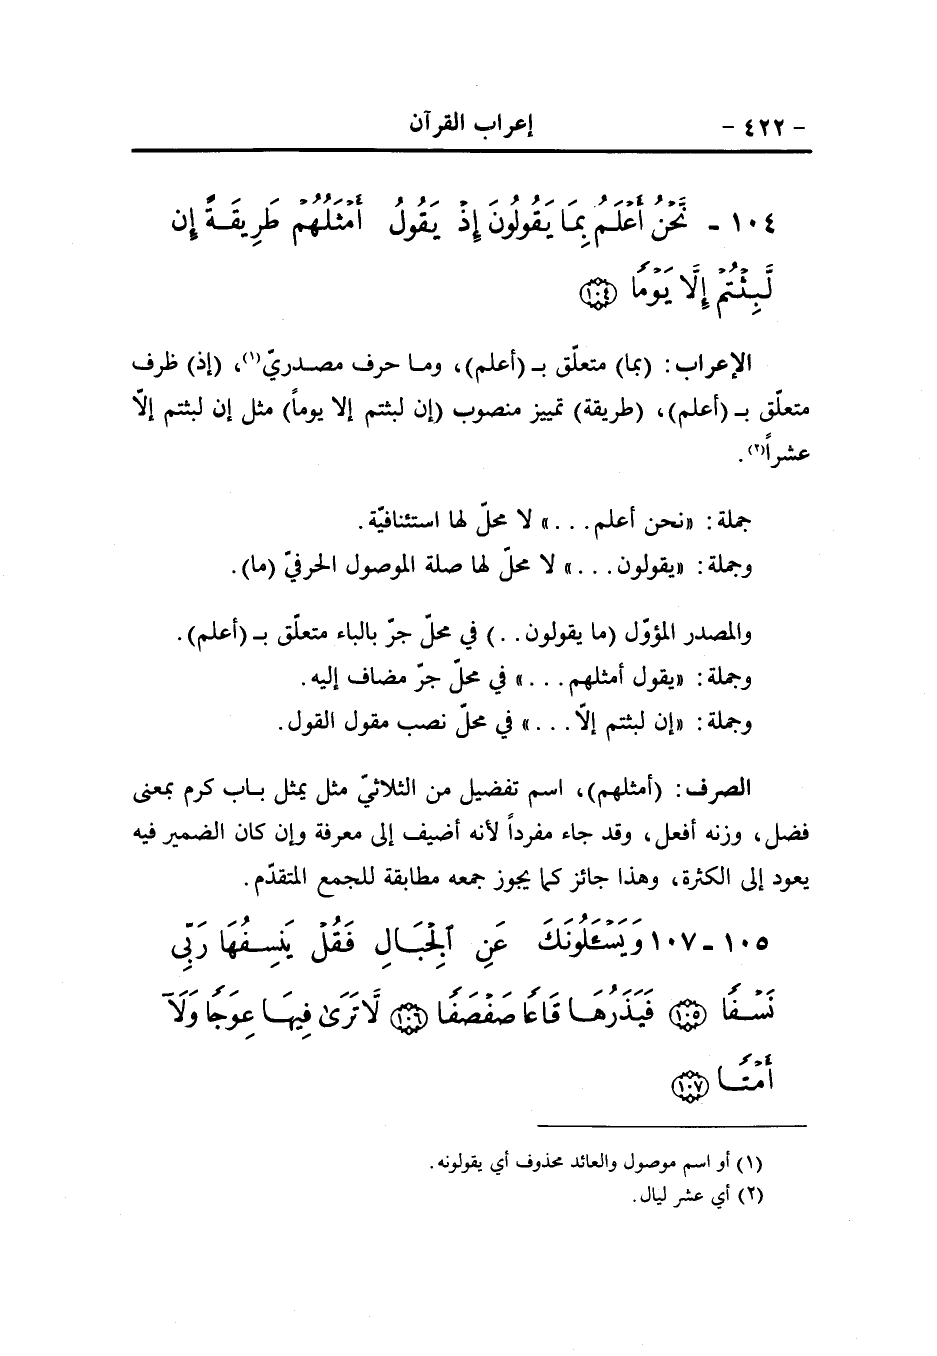 - ٤٢٢ - إعراب القرآن
١٠٤ - نَّحْنُ أَعْلَمُ بِمَا يَقُولُونَ إِذْ يَقُولُ أَمْثَلُهُمْ طَرِيقَةً إِن
لَّبِثْتُمْ إِلَّا يَوْمًا ﴿١٠٤﴾
الإعراب: (بما) متعلّق بـ (أعلم)، وما حرف مصدريّ(١)، (إذ) ظرف
متعلّق بـ (أعلم)، (طريقة) تمييز منصوب (إن لبثتم إلا يوماً) مثل إن لبثتم إلاّ
عشراً(٢).
جملة: «نحن أعلم...» لا محلّ لها استئنافيّة.
وجملة: «يقولون...» لا محلّ لها صلة الموصول الحرفيّ (ما).
والمصدر المؤوّل (ما يقولون..) في محلّ جرّ بالباء متعلّق بـ (أعلم).
وجملة: «يقول أمثلهم...» في محلّ جرّ مضاف إليه.
وجملة: «إن لبثتم إلاّ...» في محلّ نصب مقول القول.
الصرف: (أمثلهم)، اسم تفضيل من الثلاثيّ مثل يمثل باب كرم بمعنى
فضل، وزنه أفعل، وقد جاء مفرداً لأنه أضيف إلى معرفة وإن كان الضمير فيه
يعود إلى الكثرة، وهذا جائز كما يجوز جمعه مطابقة للجمع المتقدّم.
١٠٥ - ١٠٧ وَيَسْـَٔلُونَكَ عَنِ ٱلْجِبَالِ فَقُلْ يَنسِفُهَا رَبِّى
نَسْفًا ﴿١٠٥﴾ فَيَذَرُهَا قَاعًا صَفْصَفًا ﴿١٠٦﴾ لَّا تَرَىٰ فِيهَا عِوَجًا وَلَآ
أَمْتًا ﴿١٠٧﴾
(١) أو اسم موصول والعائد محذوف أي يقولونه.
(٢) أي عشر ليال.